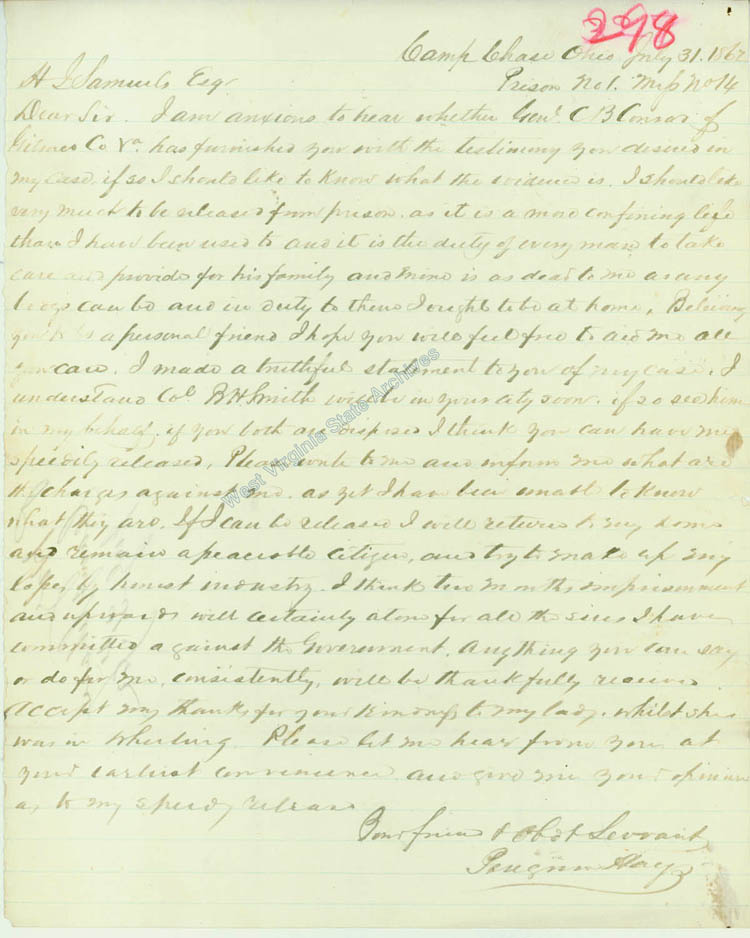 298
Camp Chase Ohio July 31. 1862
Prison No 1. Mess No 14
H J Samuels Esq.
Dear Sir. I am anxious to hear whether Genl. C B Conrad of
Gilmer Co Va. has furnished you with the testimony you desired in
my case. if so I should like to know what the evidence is. I should like
very much to be released from prison. as it is a more confining life
than I have been used to and it is the duty of every man to take
care and provide for his family and mine is as dear to me as any
bodys can be and in duty to them I ought to be at home. Believing
you to be a personal friend I hope you will feel free to aid me all
you can. I made a truthful statement to you of my case. I
understand Col. B H Smith will be in your city soon. if so see him
in my behalf. if you both are disposed I think you can have me
speedily released. Please write to me and inform me what are
the charges against me. as yet I have been unable to know
what they are. If I can be released I will return to my home
and remain a peaceable citizen, and try to make up my
losses by honest industry. I think two months imprisonment
and upwards will certainly atone for all the sins I have
committed against the Government. Anything you can say
or do for me, consistently, will be thankfully received
Accept my thanks for your kindness to my lady. whilst she
was in Wheeling. Please let me hear from you at
your earliest convenience and give me your opinion
as to my speedy release
Your friend & Obdt Servant
Perigrin Hays
West Virginia State Archives